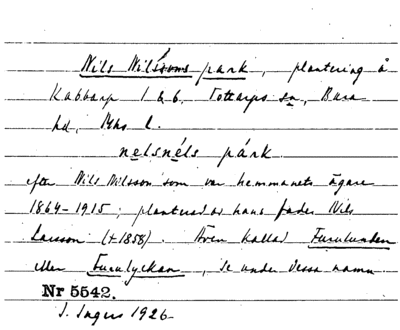 Nils Nilssons park, plantering å
Kabbarp 1 & 6. Tottarps sn, Bara
hd, Mhs l.
nelsnéls párk
efter Nils Nilsson som var hemmanets ägare
1864-1915; planterad av hans fader Nils
Larsson (+1858). Även kallad Furulunden
eller Furulyckan, se under dessa namn
Nr 5542.
I. Ingers 1926-